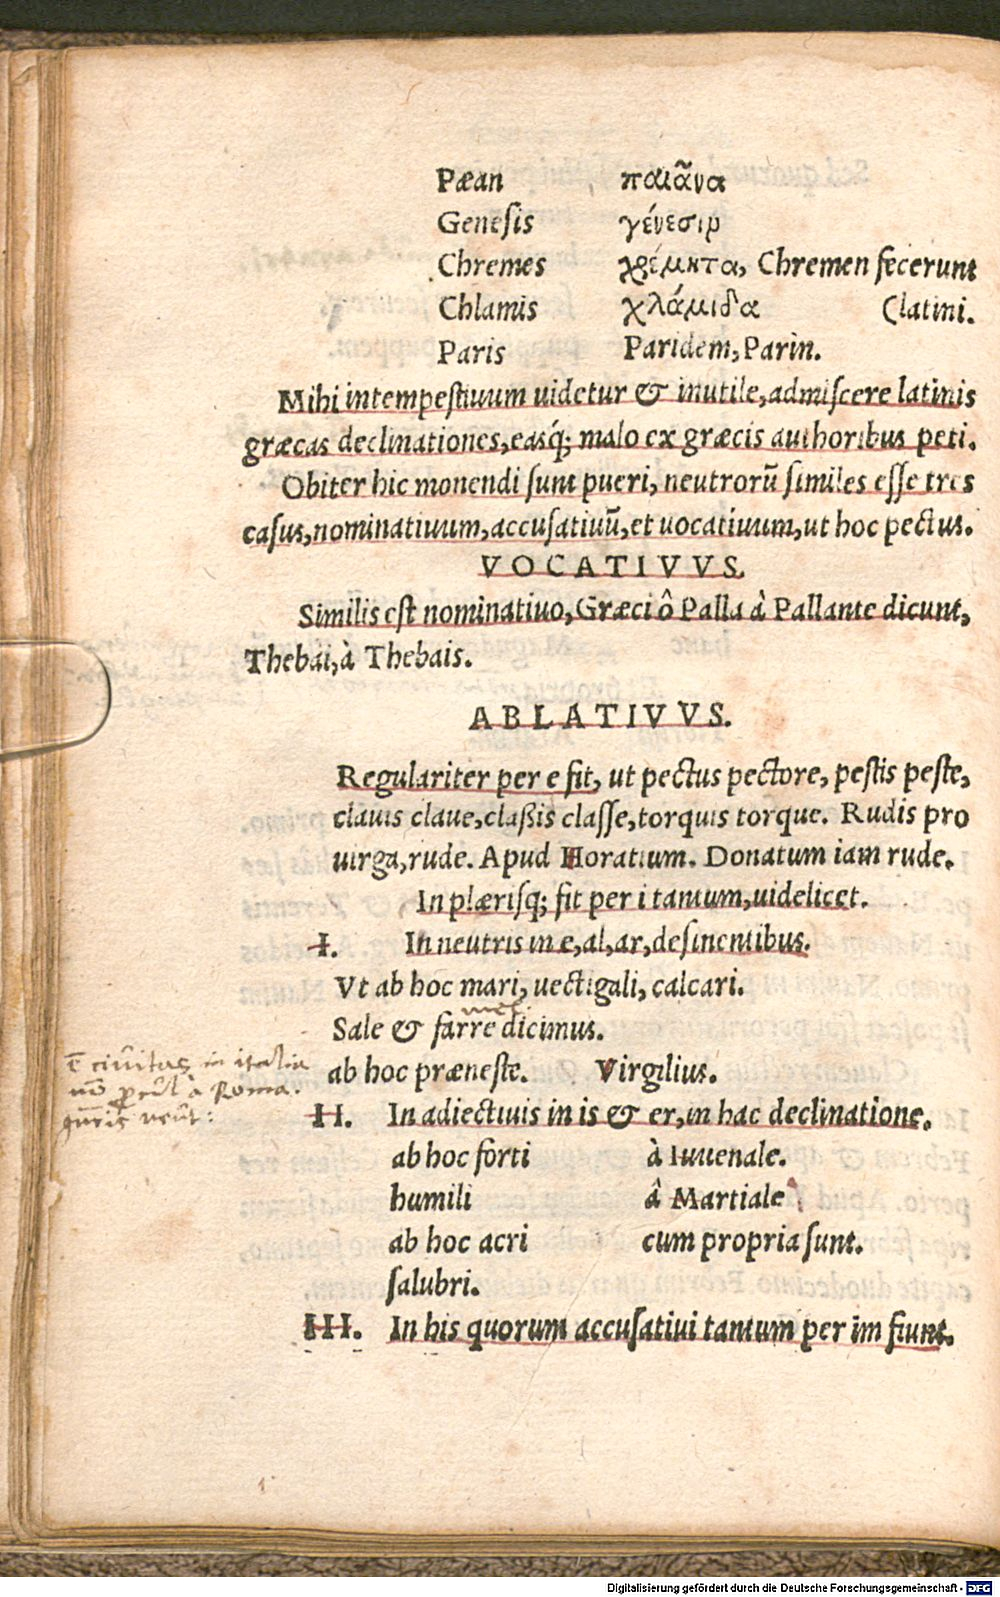 Pæan παιᾶνα
Genesis γένεσιρ
Chremes χρέμητα, Chremen fecerunt
Chlamis χλάμιδα (latini.
Paris Paridem, Parin.
Mihi intempestiuum uidetur & inutile, admiscere latinis
græcas declinationes, easq; malo ex græcis authoribus peti.
Obiter hic monendi sunt pueri, neutrorũ similes esse tres
casus, nominatiuum, accusatiuũ, et uocatiuum, ut hoc pectus.
VOCATIVVS.
Similis est nominatiuo, Græci ô Palla à Pallante dicunt,
Thebai, à Thebais.
ABLATIVVS.
Regulariter per e fit, ut pectus pectore, pestis peste,
clauis claue, claßis classe, torquis torque. Rudis pro
uirga, rude. Apud Horatium. Donatum iam rude.
In plærisq; fit per i tantum, uidelicet.
I. In neutris in e, al, ar, desinentibus.
Vt ab hoc mari, uectigali, calcari.
Sale & farre dicimus.
ē ciuitas in italia
ab hoc præneste. Virgilius.
nō procul à Roma.
II. In adiectiuis in is & er, in hac declinatione.
ab hoc forti à Iuuenale.
humili â Martiale
ab hoc acri cum propria sunt.
salubri.
III. In his quorum accusatiui tantum per im fiunt.
Digitalisierung gefördert durch die Deutsche Forschungsgemeinschaft - DFG